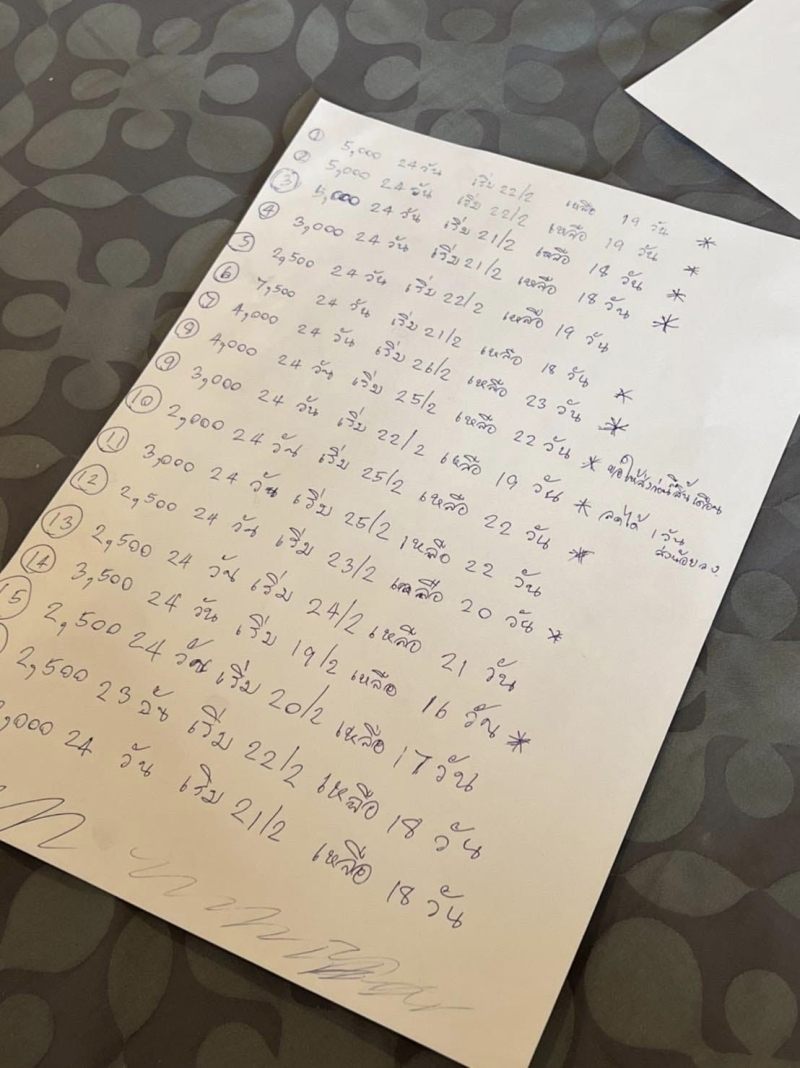 ① 5,000 24 วัน เริ่ม 22/2 เหลือ 19 วัน *
② 5,000 24 วัน เริ่ม 22/2 เหลือ 19 วัน *
③ 5,000 24 วัน เริ่ม 21/2 เหลือ 18 วัน *
④ 3,000 24 วัน เริ่ม 21/2 เหลือ 18 วัน *
⑤ 2,500 24 วัน เริ่ม 22/2 เหลือ 19 วัน
⑥ 7,500 24 วัน เริ่ม 21/2 เหลือ 18 วัน *
⑦ 4,000 24 วัน เริ่ม 26/2 เหลือ 23 วัน *
4,000 24 วัน เริ่ม 25/2 เหลือ 22 วัน * ขอให้ส่งก่อนสิ้นเดือน
⑨ 3,000 24 วัน เริ่ม 22/2 เหลือ 19 วัน * ลดได้ 1 วัน
⑩ 2,000 24 วัน เริ่ม 25/2 เหลือ 22 วัน *
⑪ 3,000 24 วัน เริ่ม 25/2 เหลือ 22 วัน
⑫ 2,500 24 วัน เริ่ม 23/2 เหลือ 20 วัน *
⑬ 2,500 24 วัน เริ่ม 24/2 เหลือ 21 วัน
⑭ 3,500 24 วัน เริ่ม 19/2 เหลือ 16 วัน *
15 2,500 24 วัน เริ่ม 20/2 เหลือ 17 วัน
2,500 23 วัน เริ่ม 22/2 เหลือ 18 วัน
,000 24 วัน เริ่ม 21/2 เหลือ 18 วัน